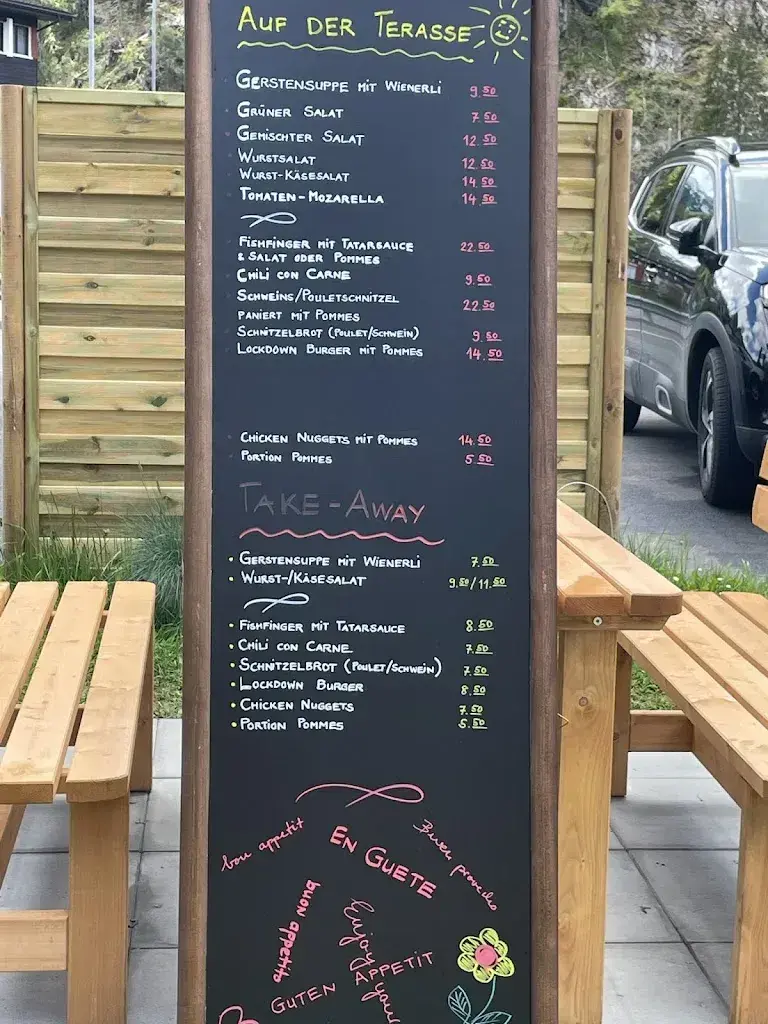 Auf der Terasse
Gerstensuppe mit Wienerli 9.50
Grüner Salat 7.50
Gemischter Salat 12.50
Wurstsalat 12.50
Wurst-Käsesalat 14.50
Tomaten-Mozarella 14.50
Fishfinger mit Tatarsauce 22.50
& Salat oder Pommes
Chili con Carne 9.50
Schweins/Pouletschnitzel 22.50
paniert mit Pommes
Schnitzelbrot (Poulet/Schwein) 9.50
Lockdown Burger mit Pommes 14.50
Chicken Nuggets mit Pommes 14.50
Portion Pommes 5.50
Take-Away
• Gerstensuppe mit Wienerli 7.50
• Wurst-/Käsesalat 9.50/11.50
• Fishfinger mit Tatarsauce 8.50
• Chili con Carne 7.50
• Schnitzelbrot (Poulet/Schwein) 7.50
• Lockdown Burger 8.50
• Chicken Nuggets 7.50
• Portion Pommes 5.50
bon appetit
En Guete
Buen provecho
buon appetito
Enjoy your
Guten Appetit